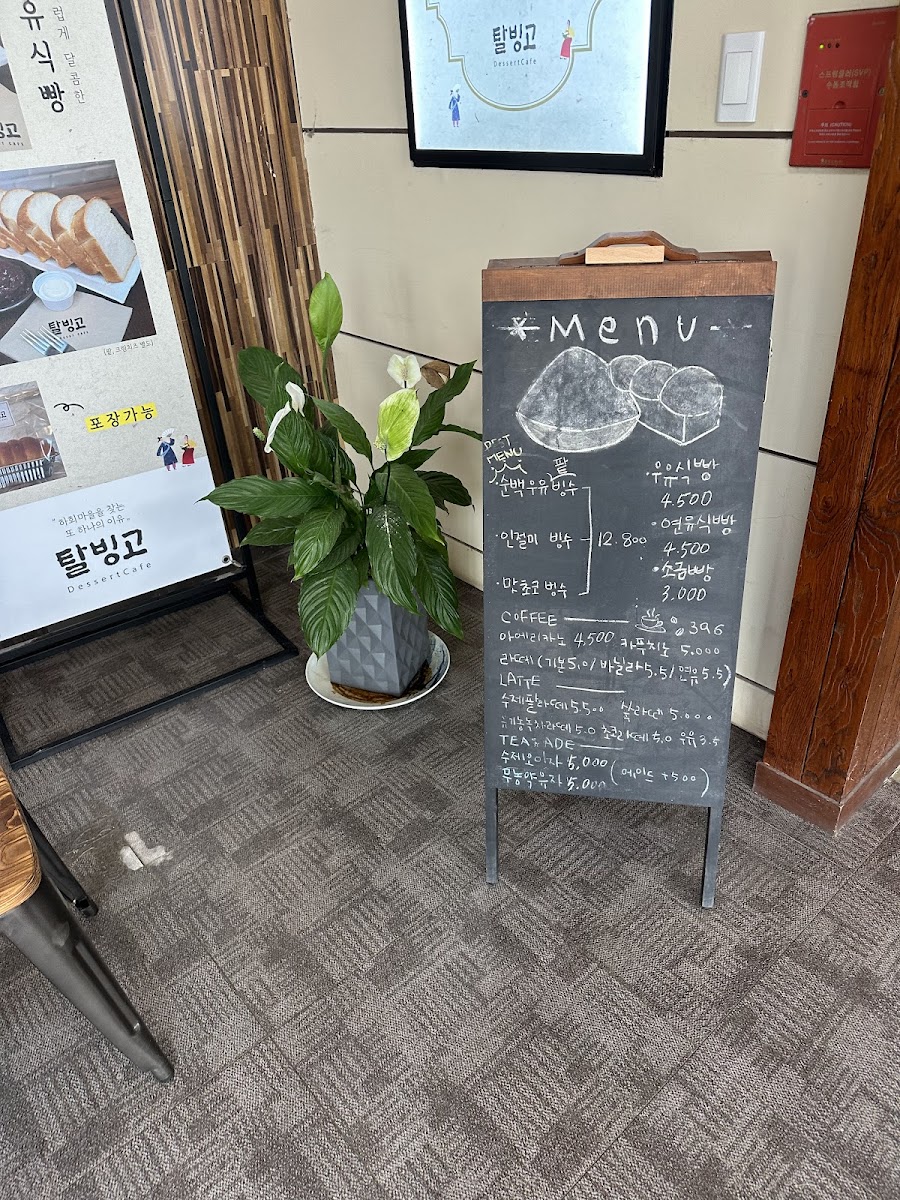 유식빵
럽게 달콤한
탈빙고
DessertCafe
스프링클러(SVP)
수동조작함
빙고
탈빙고
(팥, 크림치즈 별도)
포장가능
"하회마을을 찾는
또 하나의 이유"
탈빙고
DessertCafe
Menu
BEST
MENU
순백우유빙수
팥
인절미 빙수
12.800
맛초코빙수
우유식빵
4.500
연유식빵
4.500
소금빵
3,000
COFFEE 396
아메리카노 4,500 카푸치노 5.000
라떼(기본5.0/바닐라5.5/연유5.5)
LATTE
수제팥라떼 5.500 쑥라떼 5.000
유기농녹차라떼 5.0 초코라떼 5.0 우유 3.5
TEA ADE
수제오미자 5,000
무농약유자 5.000 (에이드 +500)